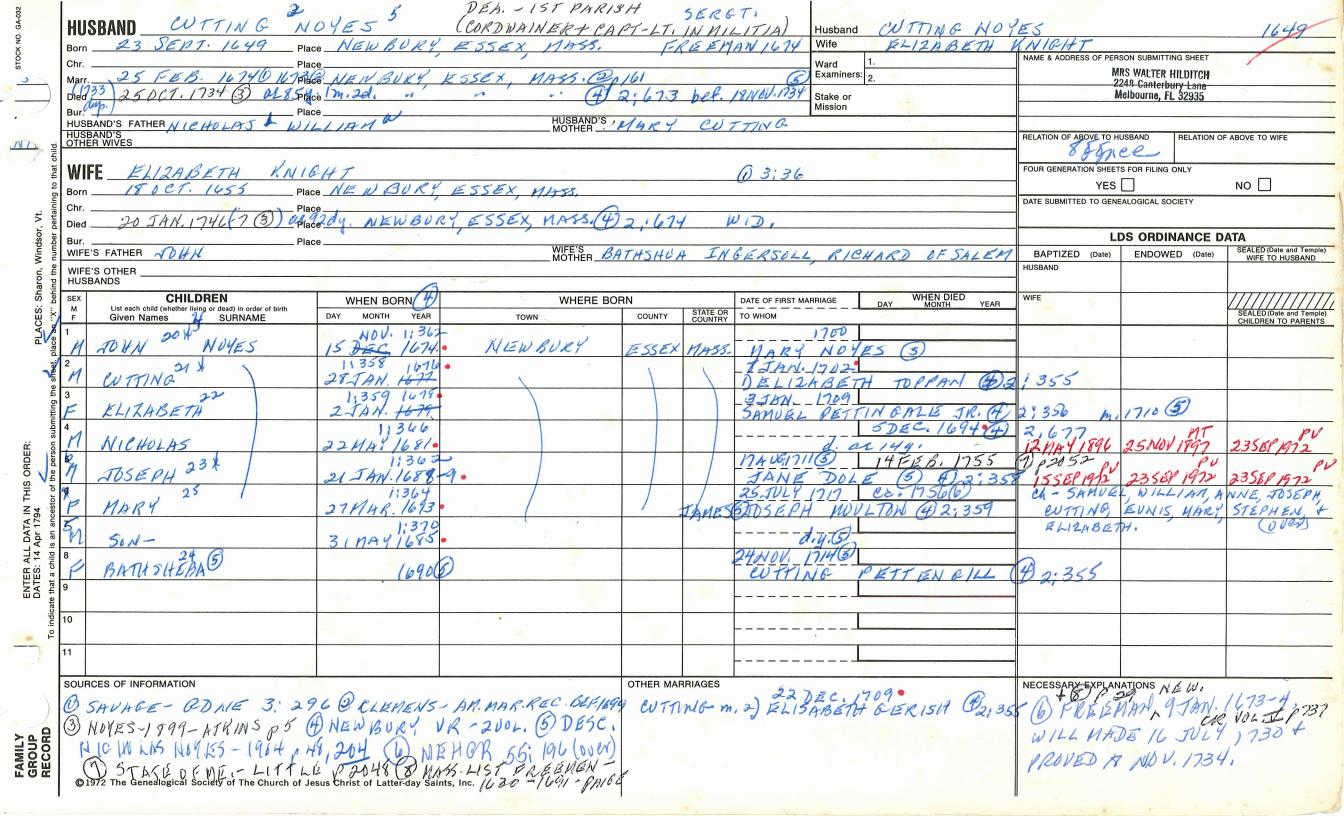 STOCK NO. GA-032
HUSBAND CUTTING 2 NOYES 5 DEA. - 1ST PARISH SERGT.
(CORDWAINER + CAPT-LT. IN MILITIA)
Born 23 SEPT. 1649 Place NEWBURY, ESSEX, MASS. FREEMAN 1674
Chr. Place
Marr. 25 FEB. 1674 ① 1673 ② Place NEWBURY, ESSEX, MASS. ② p161 ⑤
Died (1733 25 OCT. 1734 ③ ae 85y. 1m. 2d. " " ④ 2:673 bef. 18 NOV. 1734
Bur. Place
HUSBAND'S FATHER NICHOLAS WILLIAM HUSBAND'S MOTHER MARY CUTTING
HUSBAND'S OTHER WIVES
Husband CUTTING NOYES 1649
Wife ELIZABETH KNIGHT
Ward Examiners: 1.
2.
Stake or Mission
NAME & ADDRESS OF PERSON SUBMITTING SHEET
MRS WALTER HILDITCH
2248 Canterbury Lane
Melbourne, FL 32935
RELATION OF ABOVE TO HUSBAND RELATION OF ABOVE TO WIFE
FOUR GENERATION SHEETS FOR FILING ONLY
YES NO
DATE SUBMITTED TO GENEALOGICAL SOCIETY
WIFE ELIZABETH KNIGHT ① 3:36
Born 18 OCT. 1655 Place NEWBURY ESSEX, MASS.
Chr. Place
Died 20 JAN. 1746 (7 ③) Place NEWBURY, ESSEX, MASS. ④ 2:674 WID.
Bur. Place
WIFE'S FATHER JOHN WIFE'S MOTHER BATHSHUA INGERSOLL, RICHARD OF SALEM
WIFE'S OTHER HUSBANDS
LDS ORDINANCE DATA
BAPTIZED (Date) ENDOWED (Date) SEALED (Date and Temple) WIFE TO HUSBAND
HUSBAND
WIFE
SEALED (Date and Temple) CHILDREN TO PARENTS
SEX M F CHILDREN List each child (whether living or dead) in order of birth Given Names SURNAME
WHEN BORN ④ DAY MONTH YEAR
WHERE BORN TOWN COUNTY STATE OR COUNTRY
DATE OF FIRST MARRIAGE TO WHOM
WHEN DIED DAY MONTH YEAR
NOV. 1:362 1700
1 M JOHN 20 NOYES 15 DEC 1674 NEWBURY ESSEX MASS. MARY NOYES ⑤
1:358 1676 JAN. 1702
2 M CUTTING 21 28 JAN. 1677 ELIZABETH TOPPAN 2:355
1:359 JAN 1709
3 F ELIZABETH 22 2 JAN. 1679 SAMUEL PETTINGALE JR. ④ 2:356 m. 1710 ⑤
1:366 5 DEC. 1694 ④ 2,677
4 M NICHOLAS 22 MAY 1681 d. ae 14y. 12 MAY 1896 25 NOV 1897 MT 23 SEP 1972 PV
1:362 17 AUG 1711 ⑤ 14 FEB. 1755 ⑦ p2052
M JOSEPH 23 21 JAN. 1688-9 JANE DOLE ⑤ ④ 2:358 15 SEP 1972 PV 23 SEP 1972 PV 23 SEP 1972 PV
1:364 25 JULY 1717 ca. 1756 (6)
F MARY 25 27 MAR. 1693 JAMES ⑤ JOSEPH MOULTON ④ 2:359
Ch - SAMUEL, WILLIAM, ANNE, JOSEPH,
CUTTING, EUNIS, MARY, STEPHEN, +
ELIZABETH. (over)
1:370
5 M SON - 31 MAY 1685 d.y. ⑤
24 NOV. 1714 ⑤
8 F BATHSHEBA 24 ⑤ 1690 ⑤ CUTTING PETTENGILL ④ 2:355
9
10
11
SOURCES OF INFORMATION
① SAVAGE - GDNE 3:296 ② CLEMENS - AM. MAR. REC. BEF 1699
③ NOYES - 1899 - ATKINS p5 ④ NEWBURY VR - 2 VOL. ⑤ DESC.
NICHOLAS NOYES - 1904 p48, 204 ⑥ NEHGR 55:196 (over)
⑦ STATE OF ME. - LITTLE p2048 ⑧ MASS - LIST FREEMEN -
1630-1691 - PAIGE
©1972 The Genealogical Society of The Church of Jesus Christ of Latter-day Saints, Inc.
OTHER MARRIAGES
22 DEC. 1709
CUTTING m. 2) ELISABETH GERISH ④ 2:355
NECESSARY EXPLANATIONS NEW.
⑥ FREEMAN, 9 JAN. 1673-4
CR VOL V p737
WILL MADE 16 JULY, 1730 +
PROVED 18 NOV. 1734.
ENTER ALL DATA IN THIS ORDER:
PLACES: Sharon, Windsor, Vt.
DATES: 14 Apr 1794
To indicate that a child is an ancestor of the person submitting the sheet, place an "X" behind the number pertaining to that child.
FAMILY GROUP RECORD